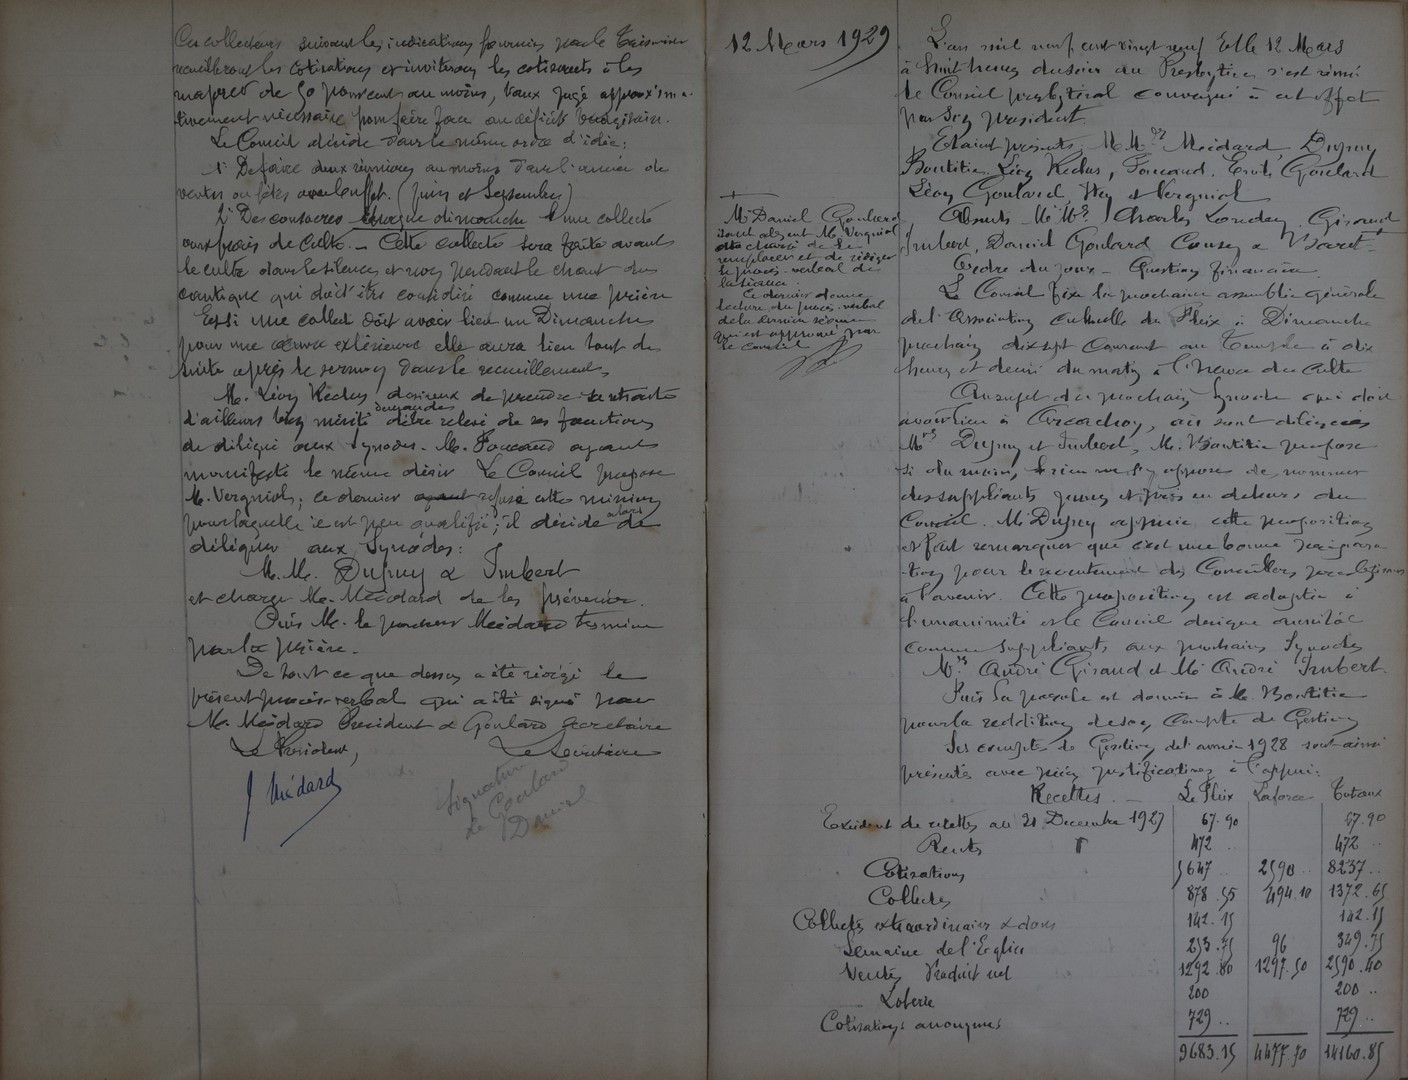 Ces collecteurs suivant les indications fournies par le Trésorier
recueilleront les cotisations et inviteront les cotisants à les
majorer de 50 pour cent au moins, taux jugé approxima-
tivement nécessaire pour faire face au déficit budgétaire.
Le Conseil décide dans le même ordre d'idée:
1° De faire deux réunions au moins dans l'année de
ventes ou fêtes avec buffet. (Juin et Septembre)
2° De consacrer chaque dimanche une collecte
aux frais de culte. _ Cette collecte sera faite avant
le culte dans le silence et non pendant le chant du
cantique qui doit être considéré comme une prière
Et si une collecte doit avoir lieu un Dimanche
pour une œuvre extérieure elle aura lieu tout de
suite après le sermon dans le recueillement,
M. Léon Reclus désireux de prendre sa retraite
d'ailleurs bien mérité demande d'être relevé de ses fonctions
de délégué aux Synodes. M. Foucaud ayant
manifesté le même désir Le Conseil propose
M. Vergniol; ce dernier ayant refusé cette mission
pour laquelle il est peu qualifié; il décide alors de
déléguer aux Synodes:
M.M. Dupuy & Imbert
et charge M. Médard de les prévenir.
Puis M. le pasteur Médard termine
par la prière.
De tout ce que dessus a été rédigé le
présent procès-verbal qui a été signé par
M. Médard Président & Goulard Secrétaire
Le Président, Le Secrétaire
J Médard
Signature
Le Goulard
Daniel
12 Mars 1929
L'an mil neuf cent vingt neuf Et le 12 Mars
à huit heures du soir au Presbytère s'est réuni
le Conseil presbytéral convoqué à cet effet
par son président.
Etaient présents M.M.rs Médard, Dupuy
Boutitie, Léon Reclus, Foucaud, Goulard
Léon Goulard, et Vergniol
Absents M.Mrs Charles Giraud
Imbert, Daniel Goulard &
Ordre du jour _ Question financière
M. Daniel Goulard
étant absent M. Vergniol
est chargé de le
remplacer et de rédiger
le procès-verbal de
la séance.
Ce dernier donne
lecture du procès-verbal
de la dernière séance
qui est approuvé par
le conseil
Le Conseil fixe la prochaine assemblée générale
de l'Association cultuelle du Fleix à Dimanche
prochain dix sept courant au Temple à dix
heures et demi du matin à l'heure du culte
Au sujet du prochain Synode qui doit
avoir lieu à Arcachon, où sont délégués
Mrs Dupuy et Imbert, M. Boutitie propose
si du moins, rien ne s'y oppose de nommer
des suppléants jeunes et pris en dehors du
Conseil. M. Dupuy appuie cette proposition
et fait remarquer que c'est une bonne prépara-
tion pour le recrutement des Conseillers presbytéraux
à l'avenir. Cette proposition est adoptée à
l'unanimité et le Conseil désigne aussitôt
comme suppléants aux prochains Synodes
Mrs André Giraud et M. André Imbert.
Puis la parole est donnée à M. Boutitie
pour la reddition de son Compte de Gestion
Ses comptes de Gestion de l'année 1928 sont ainsi
présentés avec pièces justificatives à l'appui:
Recettes. _ Le Fleix Laforce Totaux
Excédent de recettes au 31 Decembre 1927 67.90 67.90
Rentes 472 .. 472 ..
Cotisations 5647 .. 2590 .. 8237 ..
Collectes 878.55 494.10 1372.65
Collectes extraordinaires & dons 142.15 142.15
Semaine de l'Eglise 253.75 96 349.75
Ventes Produit net 1292.80 1297.50 2590.40
Loterie 200 200 ..
Cotisations anonymes 729 .. 729 ..
9683.15 4477.70 14160.85